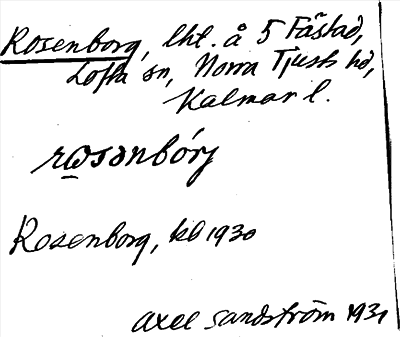 Rosenborg, lht. å 5 Fåstad,
Lofta sn, Norra Tjusts hd,
Kalmar l.
rωsənbórj
Rosenborg, kb 1930
Axel Sandström 1931